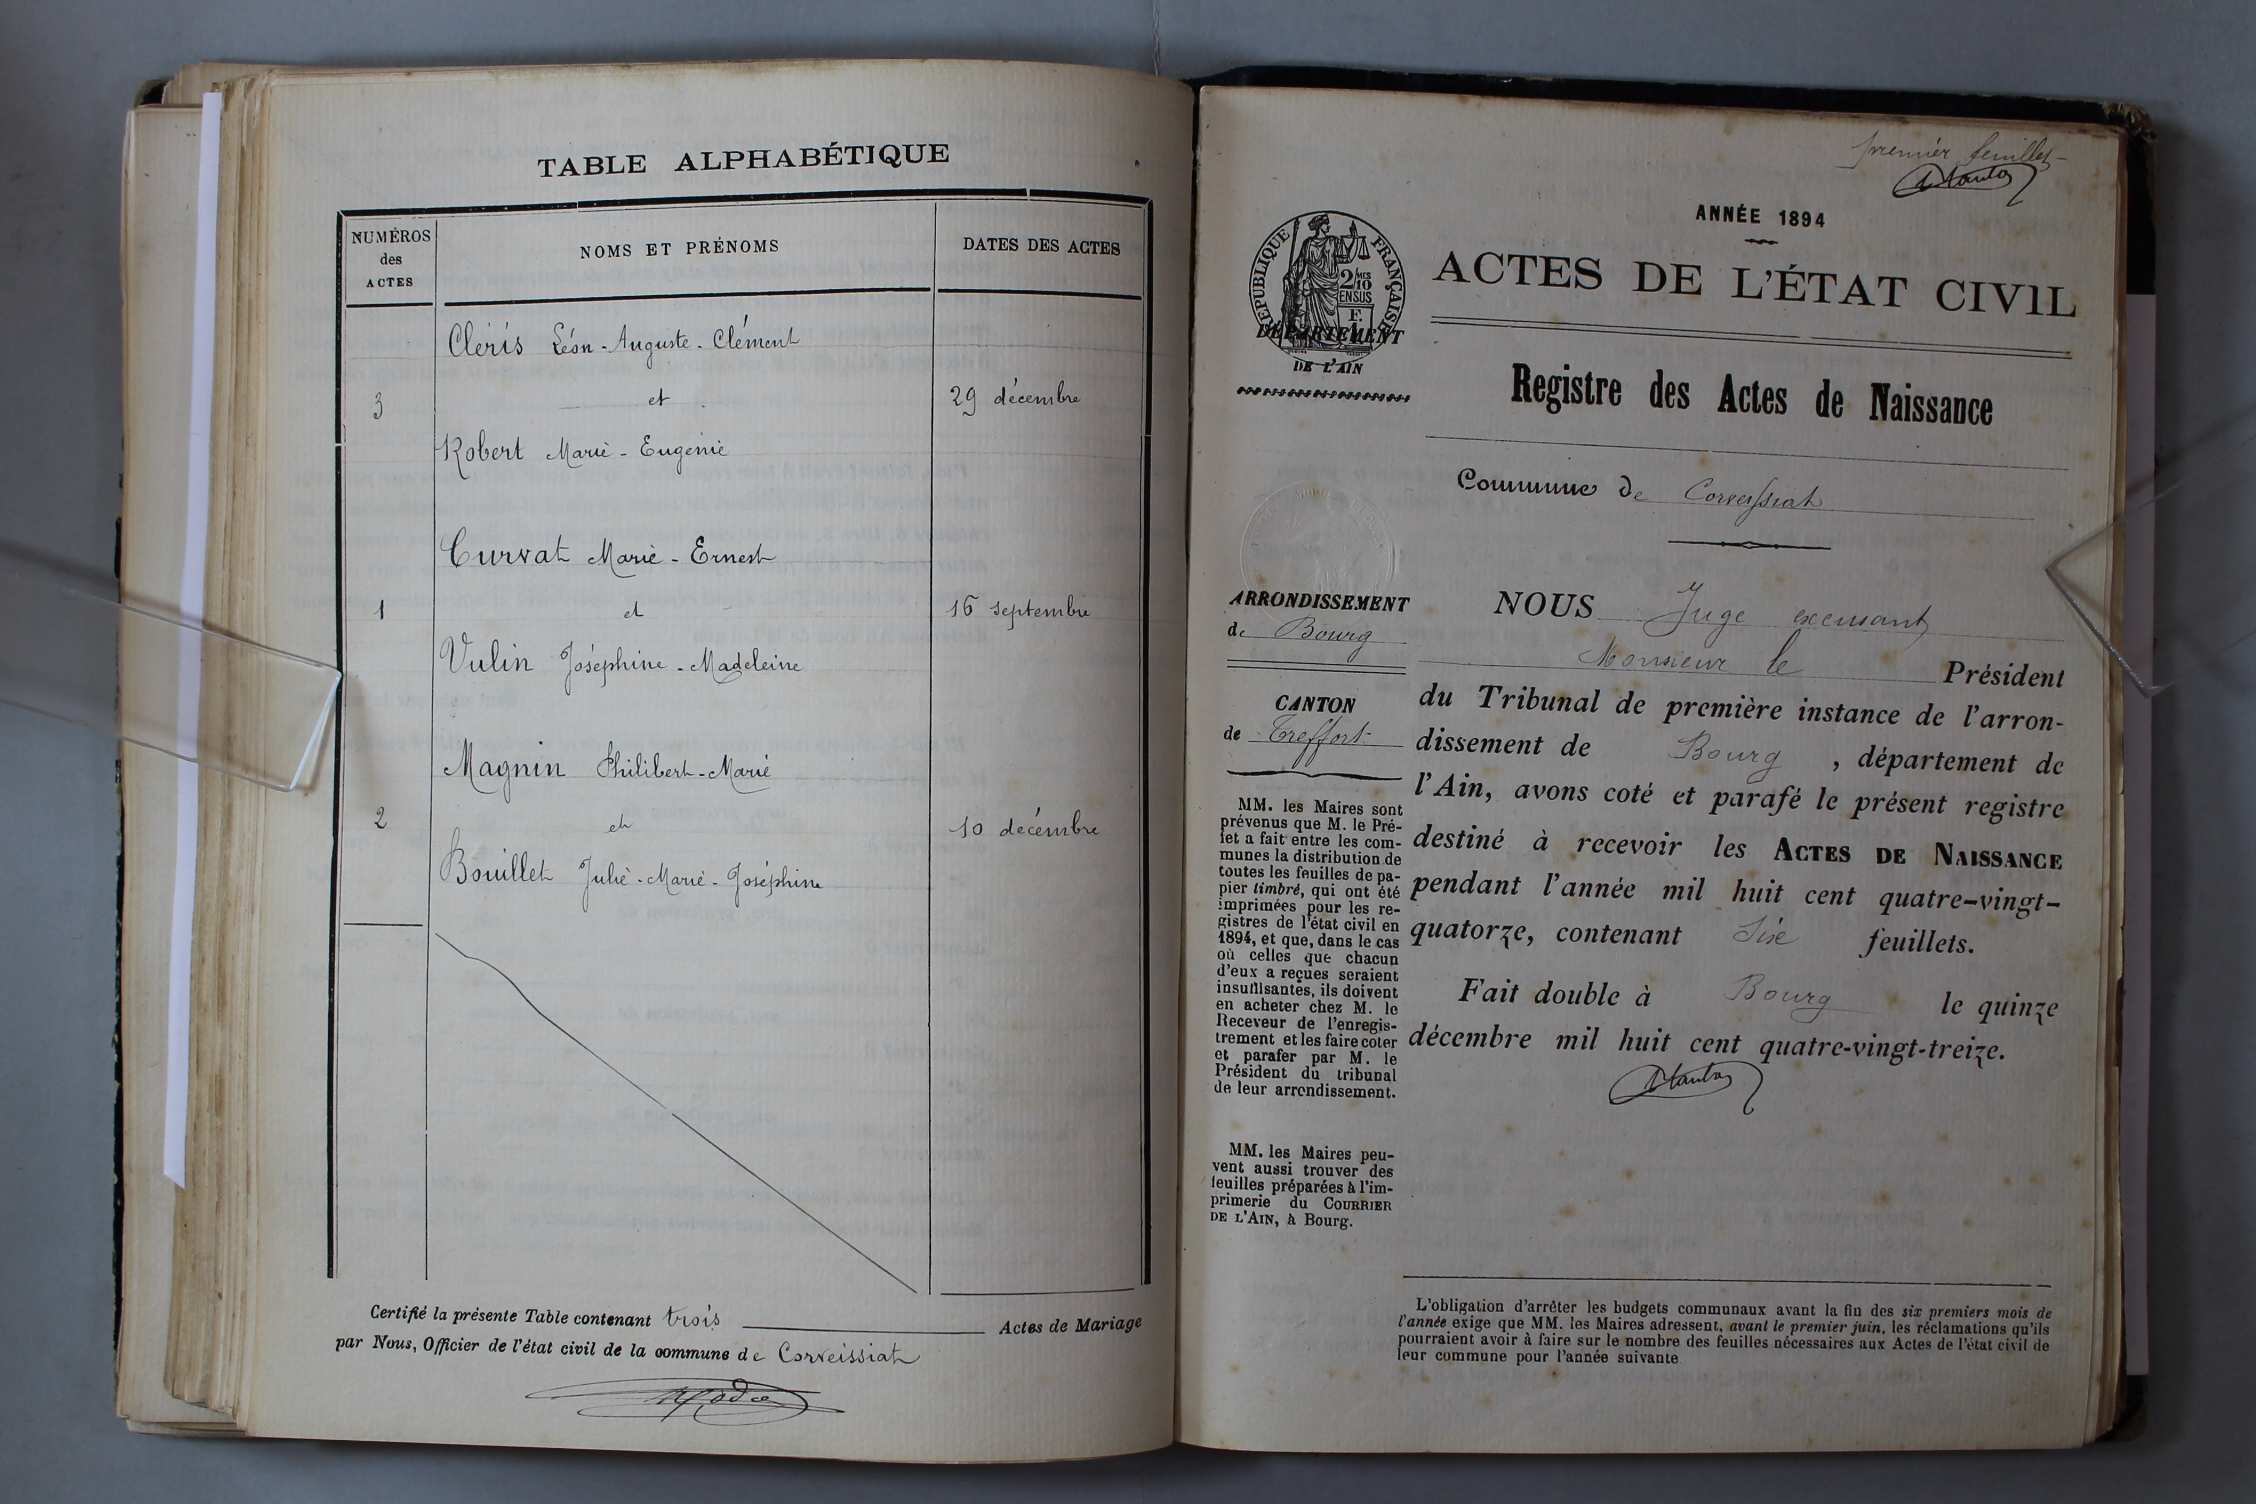 TABLE ALPHABÉTIQUE
NUMÉROS
des
ACTES
NOMS ET PRÉNOMS
DATES DES ACTES
Cléris Léon-Auguste-Clément
3 et 29 décembre
Robert Marie-Eugénie
Curvat Marie-Ernest
1 et 16 septembre
Vulin Joséphine-Madeleine
Magnin Philibert-Marie
2 et 10 décembre
Bouillet Julie-Marie-Joséphine
Certifié la présente Table contenant trois Actes de Mariage
par Nous, Officier de l'état civil de la commune de Corveissiat
premier feuillet
ANNÉE 1894
ACTES DE L'ÉTAT CIVIL
RÉPUBLIQUE FRANÇAISE
2 MES
10
EN SUS
DÉPARTEMENT
DE L'AIN
Registre des Actes de Naissance
Commune de Corveissiat
ARRONDISSEMENT
de Bourg
CANTON
de Treffort
MM. les Maires sont
prévenus que M. le Pré-
fet a fait entre les com-
munes la distribution de
toutes les feuilles de pa-
pier timbré, qui ont été
imprimées pour les re-
gistres de l'état civil en
1894, et que, dans le cas
où celles que chacun
d'eux a reçues seraient
insuffisantes, ils doivent
en acheter chez M. le
Receveur de l'enregis-
trement et les faire coter
et parafer par M. le
Président du tribunal
de leur arrondissement.
MM. les Maires peu-
vent aussi trouver des
feuilles préparées à l'im-
primerie du COURRIER
DE L'AIN, à Bourg.
NOUS Juge exerçant
Monsieur le Président
du Tribunal de première instance de l'arron-
dissement de Bourg, département de
l'Ain, avons coté et parafé le présent registre
destiné à recevoir les ACTES DE NAISSANCE
pendant l'année mil huit cent quatre-vingt-
quatorze, contenant Six feuillets.
Fait double à Bourg le quinze
décembre mil huit cent quatre-vingt-treize.
L'obligation d'arrêter les budgets communaux avant la fin des six premiers mois de
l'année exige que MM. les Maires adressent, avant le premier juin, les réclamations qu'ils
pourraient avoir à faire sur le nombre des feuilles nécessaires aux Actes de l'état civil de
leur commune pour l'année suivante